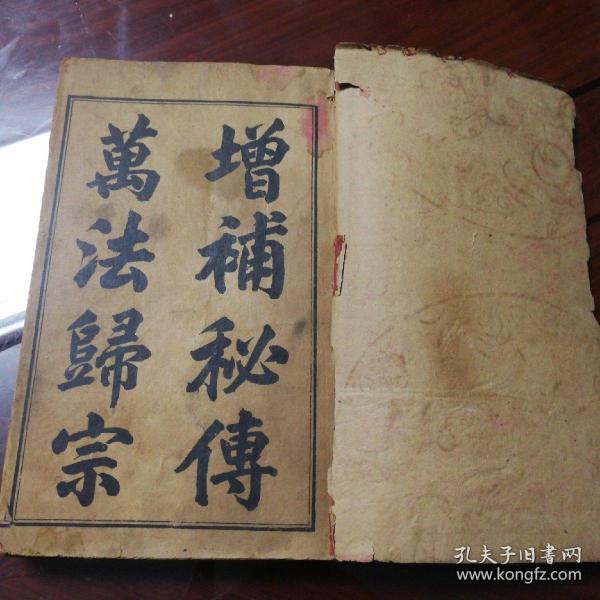 增補秘傳
萬法歸宗
孔夫子旧書网
www.kongfz.com